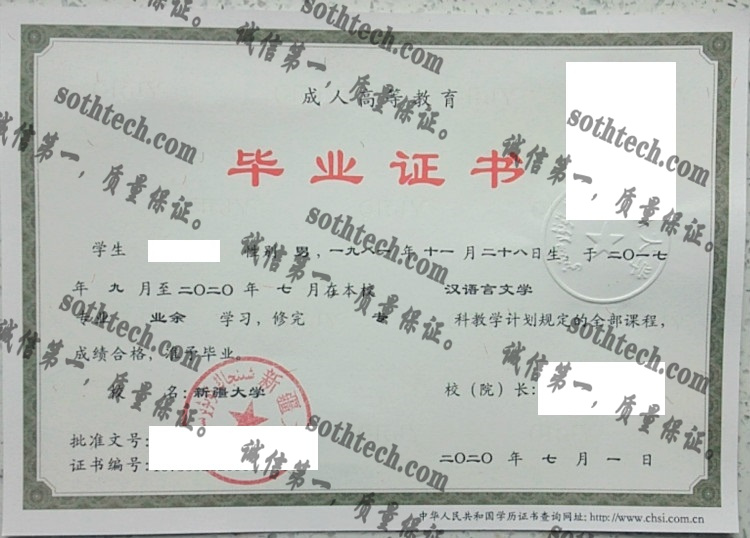 成人高等教育
毕业证书
学生 性别 男，一九八一年 十一 月二十八日生，于二〇一七
年 九 月至二〇二〇 年 七 月在本校 汉语言文学
专业 业余 学习，修完 科教学计划规定的全部课程，
成绩合格，准予毕业。
校 名：新疆大学 校（院）长：
批准文号：
证书编号： 二〇二〇 年 七 月 一 日
中华人民共和国学历证书查询网址：http://www.chsi.com.cn
sothtech.com
诚信第一，质量保证。
sothtech.com
诚信第一，质量保证。
sothtech.com
诚信第一，质量保证。
sothtech.com
诚信第一，质量保证。
sothtech.com
诚信第一，质量保证。
sothtech.com
诚信第一，质量保证。
sothtech.com
诚信第一，质量保证。
sothtech.com